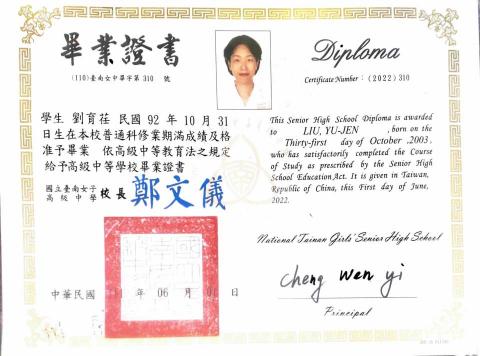 畢業證書
(110)臺南女中畢字第310 號
學生 劉育荏 民國 92 年 10 月 31
日生在本校普通科修業期滿成績及格
准予畢業 依高級中等教育法之規定
給予高級中等學校畢業證書
國立臺南女子
高級中學 校長 鄭文儀
中華民國 年 06 月 日
Diploma
Certificate Number: (2022)310
This Senior High School Diploma is awarded
to LIU, YU-JEN , born on the
Thirty-first day of October ,2003,
who has satisfactorily completed the Course
of Study as prescribed by the Senior High
School Education Act. It is given in Taiwan,
Republic of China, this First day of June,
2022.
National Tainan Girls' Senior High School
Cheng Wen yi
Principal